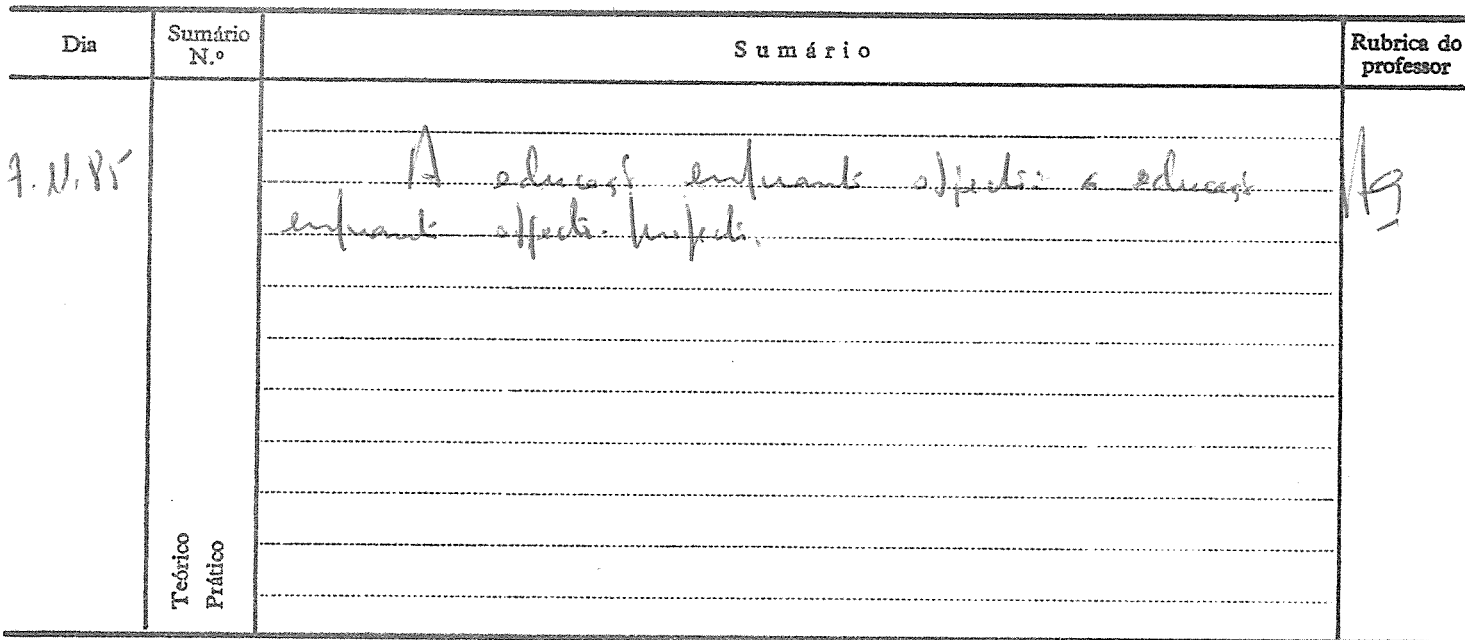 Dia
Sumário N.º
Sumário
Rubrica do professor
A educação enquanto objecto: a educação
enquanto
Teórico
Prático